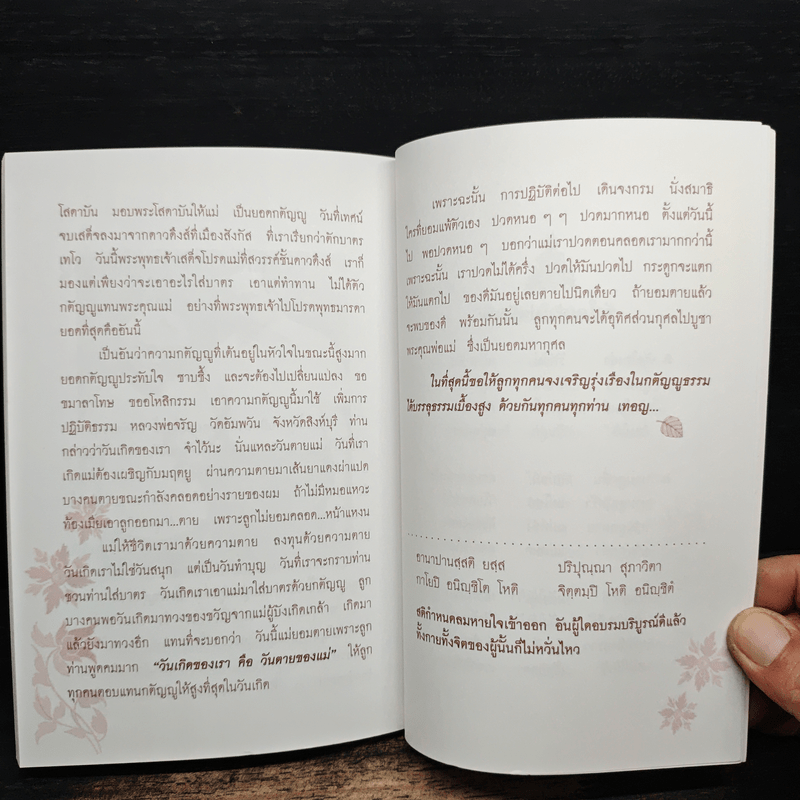 โสดาบัน มอบพระโสดาบันให้แม่ เป็นยอดกตัญญู วันที่เทศน์
จบเสด็จลงมาจากดาวดึงส์ที่เมืองสังกัส ที่เราเรียกว่าตักบาตร
เทโว วันนี้พระพุทธเจ้าเสด็จโปรดแม่ที่สวรรค์ชั้นดาวดึงส์ เราก็
มองแต่เพียงว่าจะเอาอะไรใส่บาตร เอาแต่ทำทาน ไม่ได้ตัว
กตัญญูแทนพระคุณแม่ อย่างที่พระพุทธเจ้าไปโปรดพุทธมารดา
ยอดที่สุดคืออันนี้
เป็นอันว่าความกตัญญูที่เต้นอยู่ในหัวใจในขณะนี้สูงมาก
ยอดกตัญญูประทับใจ ซาบซึ้ง และจะต้องไปเปลี่ยนแปลง ขอ
ขมาลาโทษ ขออโหสิกรรม เอาความกตัญญูนี้มาใช้ เพิ่มการ
ปฏิบัติธรรม หลวงพ่อจรัญ วัดอัมพวัน จังหวัดสิงห์บุรี ท่าน
กล่าวว่าวันเกิดของเรา จำไว้นะ นั่นแหละวันตายแม่ วันที่เรา
เกิดแม่ต้องเผชิญกับมฤตยู ผ่านความตายมาเส้นยาแดงผ่าแปด
บางคนตายขณะกำลังคลอดอย่างรายของผม ถ้าไม่มีหมอแหวะ
ท้องเมียเอาลูกออกมา...ตาย เพราะลูกไม่ยอมคลอด...หน้าแหงน
แม่ให้ชีวิตเรามาด้วยความตาย ลงทุนด้วยความตาย
วันเกิดเราไม่ใช่วันสนุก แต่เป็นวันทำบุญ วันที่เราจะกราบท่าน
ชวนท่านใส่บาตร วันเกิดเราเอาแม่มาใส่บาตรด้วยกตัญญู ลูก
บางคนพอวันเกิดมาทวงของขวัญจากแม่ผู้บังเกิดเกล้า เกิดมา
แล้วยังมาทวงอีก แทนที่จะบอกว่า วันนี้แม่ยอมตายเพราะลูก
ท่านพูดคมมาก “วันเกิดของเรา คือ วันตายของแม่” ให้ลูก
ทุกคนตอบแทนกตัญญูให้สูงที่สุดในวันเกิด
เพราะฉะนั้น การปฏิบัติต่อไป เดินจงกรม นั่งสมาธิ
ใครที่ยอมแพ้ตัวเอง ปวดหนอ ๆ ๆ ปวดมากหนอ ตั้งแต่วันนี้
ไป พอปวดหนอ ๆ บอกว่าแม่เราปวดตอนคลอดเรามากกว่านี้
เพราะฉะนั้น เราปวดไม่ได้ครึ่ง ปวดให้มันปวดไป กระดูกจะแตก
ให้มันแตกไป ของดีมันอยู่เลยตายไปนิดเดียว ถ้ายอมตายแล้ว
จะพบของดี พร้อมกันนั้น ลูกทุกคนจะได้อุทิศส่วนกุศลไปบูชา
พระคุณพ่อแม่ ซึ่งเป็นยอดมหากุศล
ในที่สุดนี้ขอให้ลูกทุกคนจงเจริญรุ่งเรืองในกตัญญูธรรม
ได้บรรลุธรรมเบื้องสูง ด้วยกันทุกคนทุกท่าน เทอญ...
อานาปานสฺสติ ยสฺส ปริปุณฺณา สุภาวิตา
กาโยปิ อนิญฺชิโต โหติ จิตฺตมฺปิ โหติ อนิญฺชิตํ
สติกำหนดลมหายใจเข้าออก อันผู้ใดอบรมบริบูรณ์ดีแล้ว
ทั้งกายทั้งจิตของผู้นั้นก็ไม่หวั่นไหว